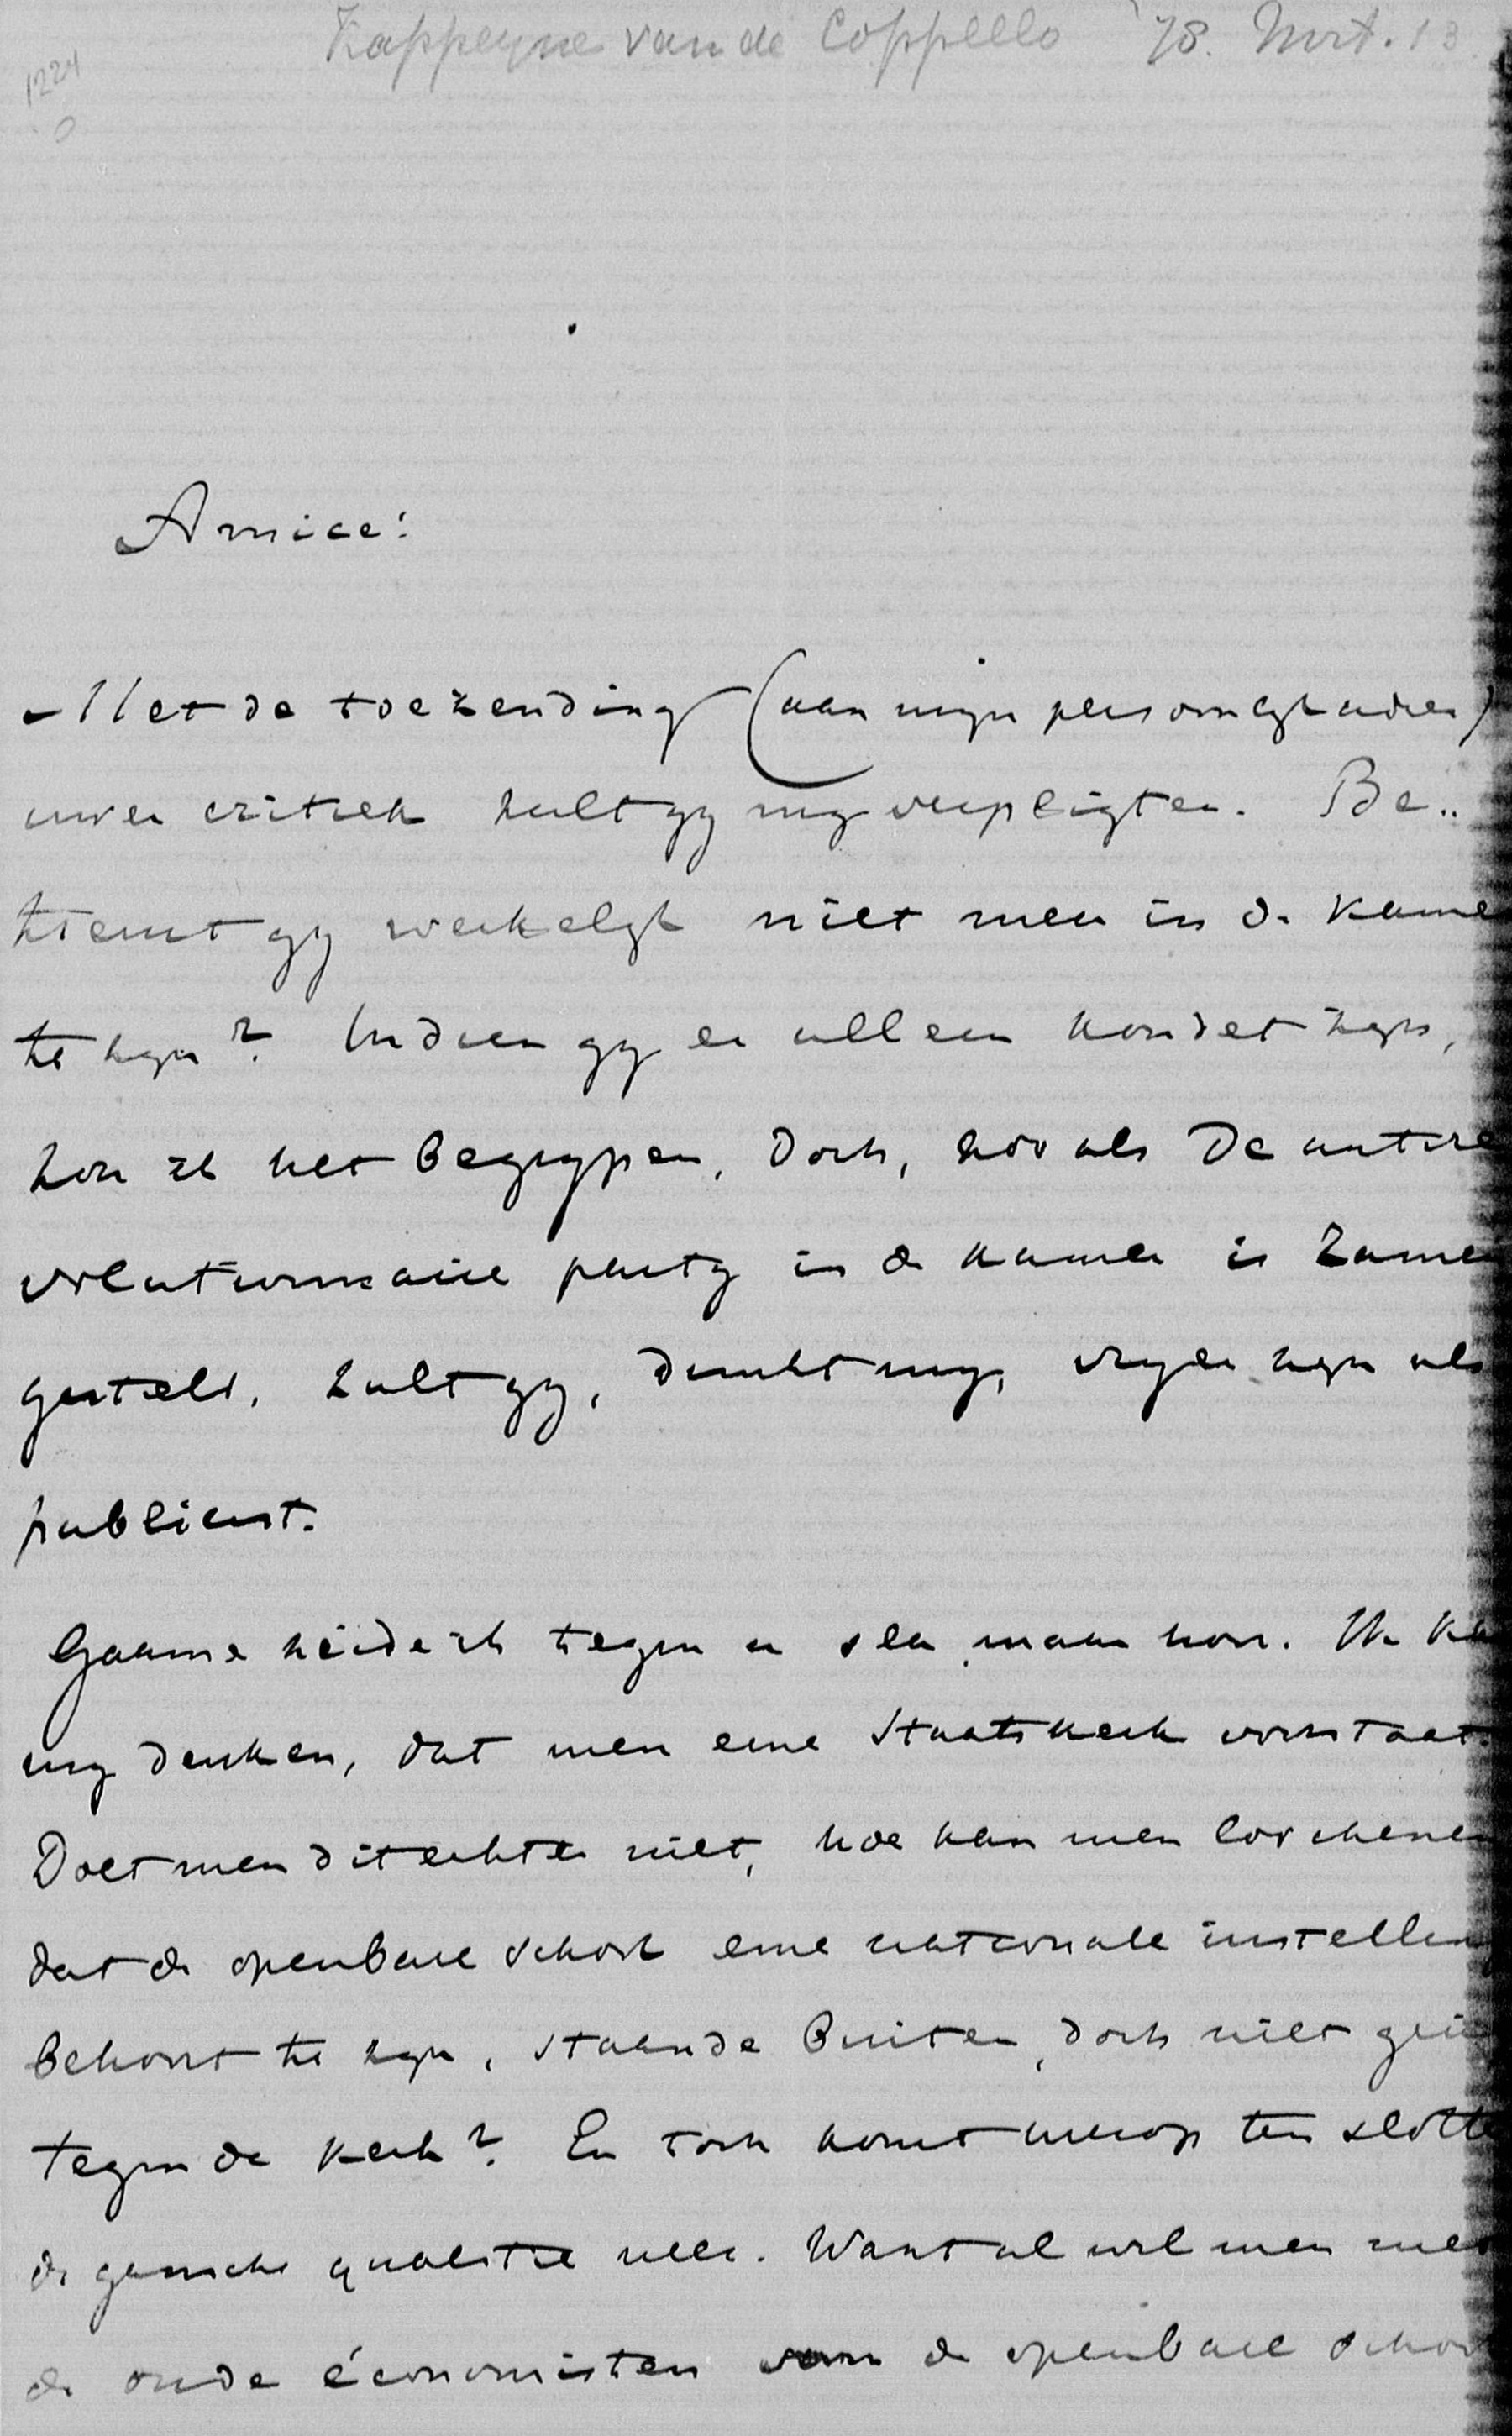 Kappeyne van de Coppello '78. Mrt. 13
1224
0
Amice!
Met de toezending (aan mijn persoonlijk adres)
uwer critiek zult gij mij verpligten. Be..
treurt gij werkelijk niet meer in de Kamer
te zijn? Indien gij er alleen kondet zijn,
zou ik het begrijpen. Doch, zooals de antire
volutionnaire partij in de Kamer is zamen
gesteld, zult gij, dunkt mij, vrijer zijn als
publicist.
Gaarne zeide ik tegen u sla maar hou. Ik ka
mij denken, dat men eene Staatskerk voorstaat.
Doet men dit echter niet, hoe kan men loochenen
dat de openbare school eene nationale instelling
behoort te zijn, staande buiten, doch niet geri
tegen de Kerk? En toch komt hierop ten slotte
de gansche qualitie neer. Want al wil men met
de oude économisten van de openbare schoo